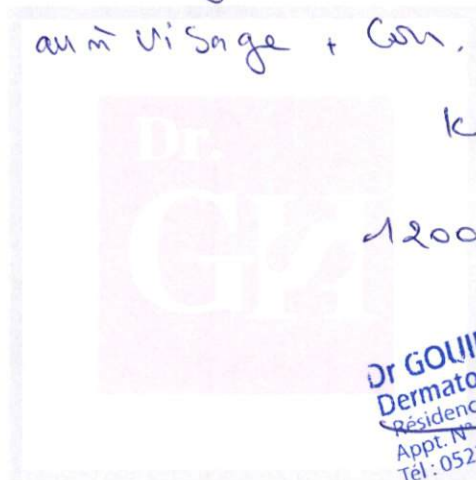 visage + Cou.
k
1200
Dr.
GH
Dr GOUI
Dermato
Résidenc
Appt. N°
Tél : 052